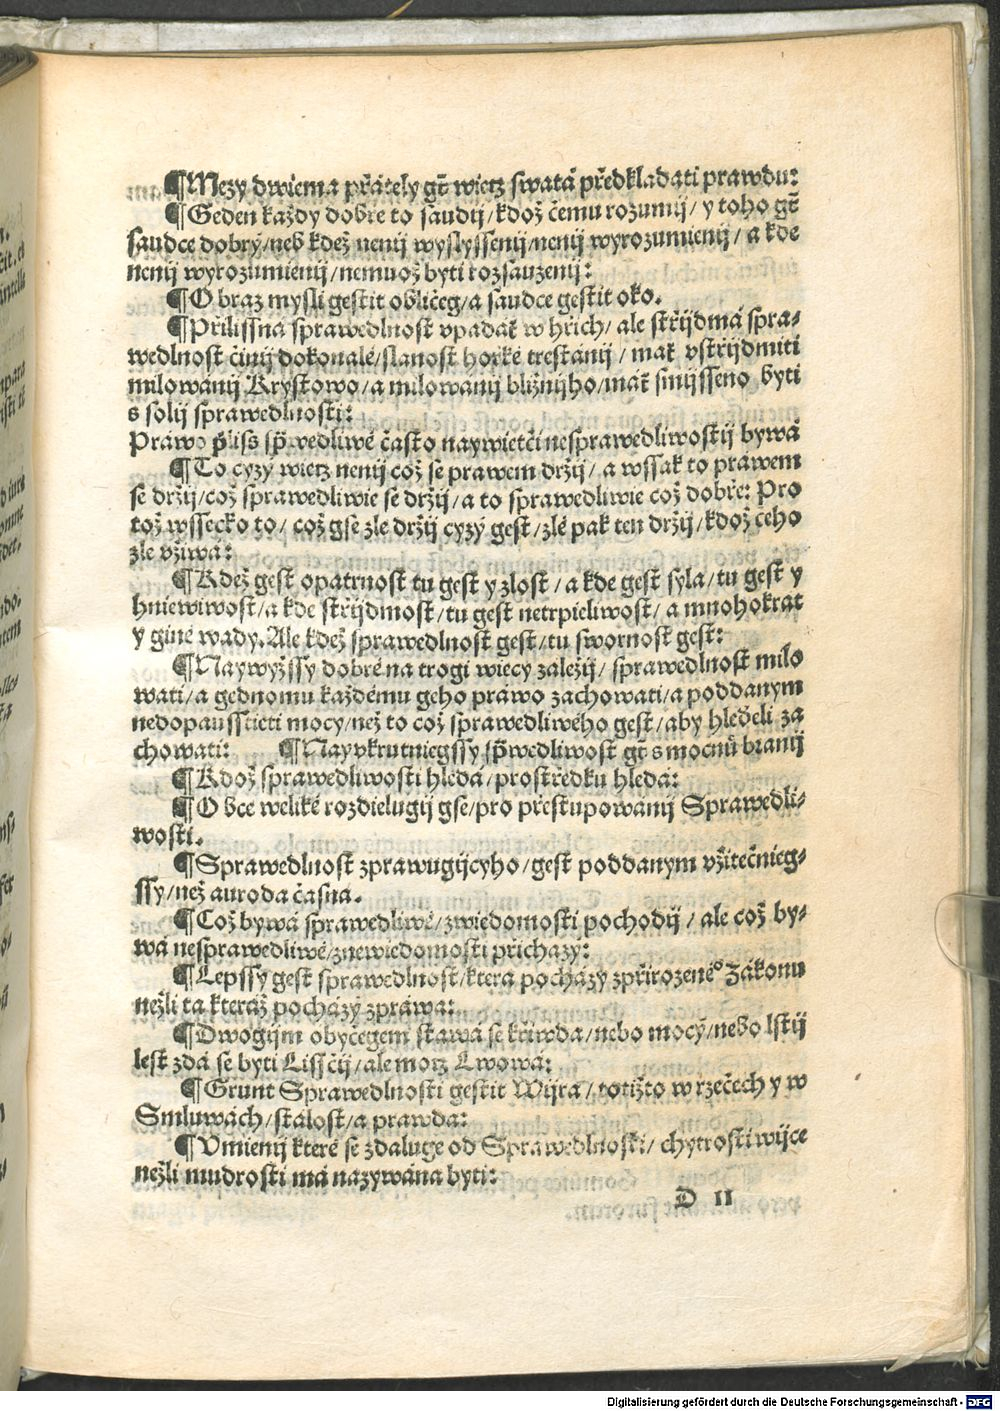 ¶Mezy dwiema přátely gt̃ wietz swatá předkladati prawdu:
¶Geden každy dobře to saudij/kdož čemu rozumij/ y toho gt̃
saudce dobrý/neb kdež nenij wyslyssenij/nenij wyrozumienij/ a kde
nenij wyrozumienij/nemuož byti rozsauzenij:
¶Obraz mysli gestit obličeg/a saudce gestit oko.
¶Přilissná sprawedlnost vpadat w hřich/ ale střijdmá spra-
wedlnost činij dokonalé/slanost hořké trestánij/ mat vstřijdmiti
milowánij Krystowo/a milowanij bližnijho/mát smijsseno byti
s solij sprawedlnosti:
Prawo p̃liss sp̃wedliwé často naywietči nesprawedliwostij bywá
¶To cyzy wietz nenij což se prawem držij/ a wssak to práwem
se držij/což sprawedliwie se držij/a to sprawedliwie což dobře: Pro
tož wssecko to/ což gse zle držij cyzý gest/zlé pak ten držij/kdož čeho
zle vžiwá:
¶Kdež gest opatrnost tu gest y zlost/ a kde gest syla/tu gest y
hniewiwost/a kde střijdmost/tu gest netrpieliwost/ a mnohokrat
y giné wady. Ale kdež sprawedlnost gest/tu swornost gest:
¶Naywyžssy dobré na trogi wiecy záležij/ sprawedlnost milo
wati/a gednomu každému geho práwo zachowati/a poddanym
nedopausstieti mocy/než to což sprawedliwého gest/aby hleďeli za
chowati: ¶Nayvkrutniegssy sp̃wedliwost gt̃ s mocnú branij
¶Kdož sprawedliwosti hledá/prostředku hledá:
¶Obce weliké rozdielugij gse/pro přestupowánij Sprawedli-
wosti.
¶Sprawedlnost zprawugijcyho/gest poddanym vžitečnieg-
ssy/než auroda časna.
¶Což bywá sprawedliwé/zwiedomosti pochodij/ ale což by-
wá nesprawedliwé/znewiedomosti přichazý:
¶Lepssy gest sprawedlnost/která pocházy zpřirozenéº Zákonu
nežli ta kteráž pocházý zpráwa:
¶Dwogijm obyčegem stawá se křiwda/nebo mocý/nebo lstij
lest zdá se byti Lissčij/ale motz Lwowá:
¶Grunt Sprawedlnosti gestit Wijra/totižto w rzečech y w
Smluwách/stálost/a prawda:
¶Vmienij které se zdaluge od Sprawedlnosti/ chytrosti wijce
nežli mudrosti má nazywána byti:
D II
Digitalisierung gefördert durch die Deutsche Forschungsgemeinschaft - DFG